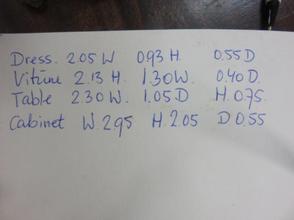 Dress. 2.05 W 0.93 H. 0.55 D
Vitrine 2.13 H. 1.30 W. 0.40 D.
Table 2.30 W. 1.05 D H. 0.75.
Cabinet W. 2.95 H. 2.05 D 0.55